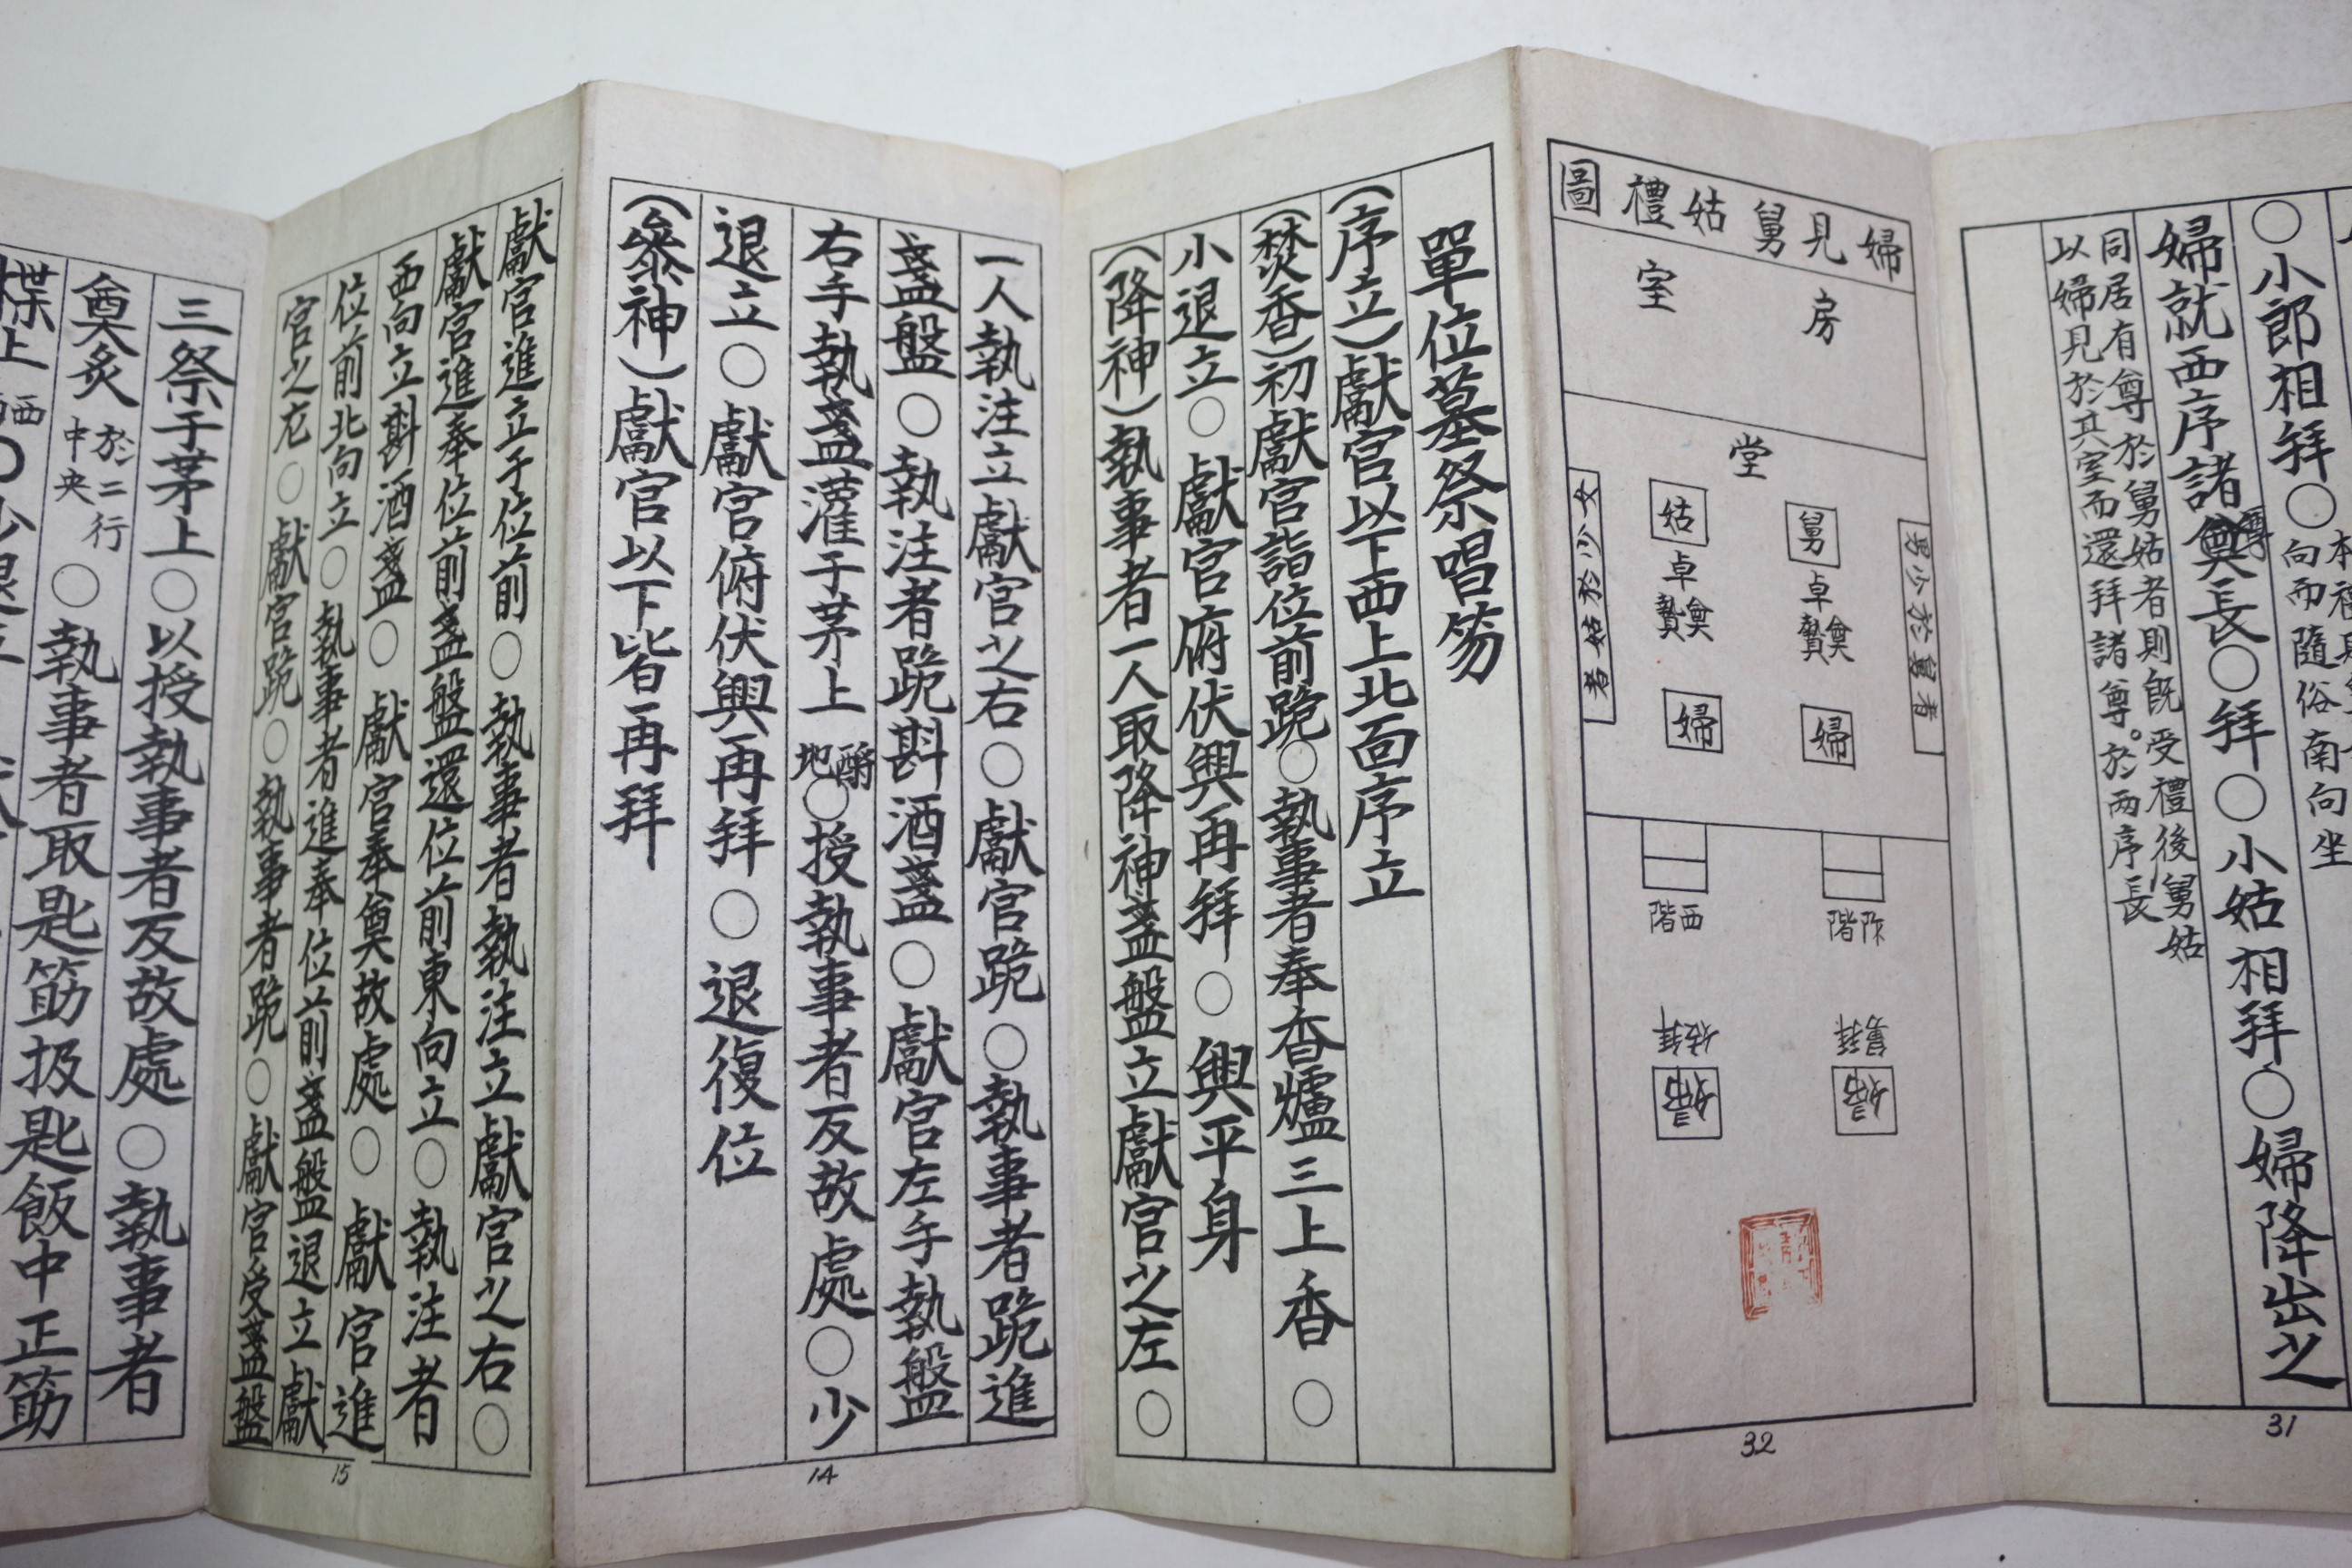 ○小郎相拜○
向而隨俗南向坐
婦就西序諸尊長○拜○小姑相拜○婦降出之
同居有尊於舅姑者則旣受禮後舅姑
以婦見於其室而還拜諸尊。於兩序長
31
婦見舅姑禮圖
房
室
堂
舅
姑
卓
卓
奠贄
奠贄
婦
婦
男少於舅者
女少於姑者
阼階
西階
舅拜
姑拜
婦
婦
32
單位墓祭唱笏
(序立)獻官以下西上北面序立
(焚香)初獻官詣位前跪○執事者奉香爐三上香○
小退立○獻官俯伏興再拜○興平身
(降神)執事者一人取降神盞盤立獻官之左○
一人執注立獻官之右○獻官跪○執事者跪進
盞盤○執注者跪斟酒盞○獻官左手執盤
右手執盞灌于茅上酹地○授執事者反故處○少
退立○獻官俯伏興再拜○退復位
(參神)獻官以下皆再拜
14
獻官進立于位前○執事者執注立獻官之右○
獻官進奉位前盞盤還位前東向立○執注者
西向立斟酒盞○獻官奉奠故處○獻官進
位前北向立○執事者進奉位前盞盤退立獻
官之左○獻官跪○執事者跪○獻官受盞盤
15
三祭于茅上○以授執事者反故處○執事者
奠炙於二行中央○執事者取匙筯扱匙飯中正筯
楪上